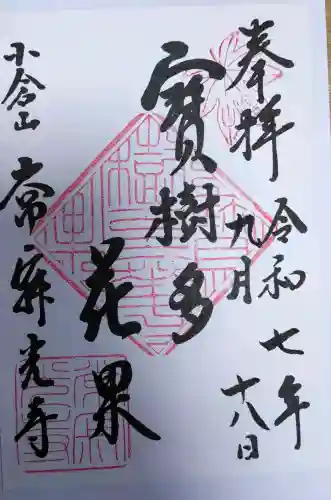 奉拝
令和七年
九月
十八日
寳樹多
花果
小倉山
常寂光寺